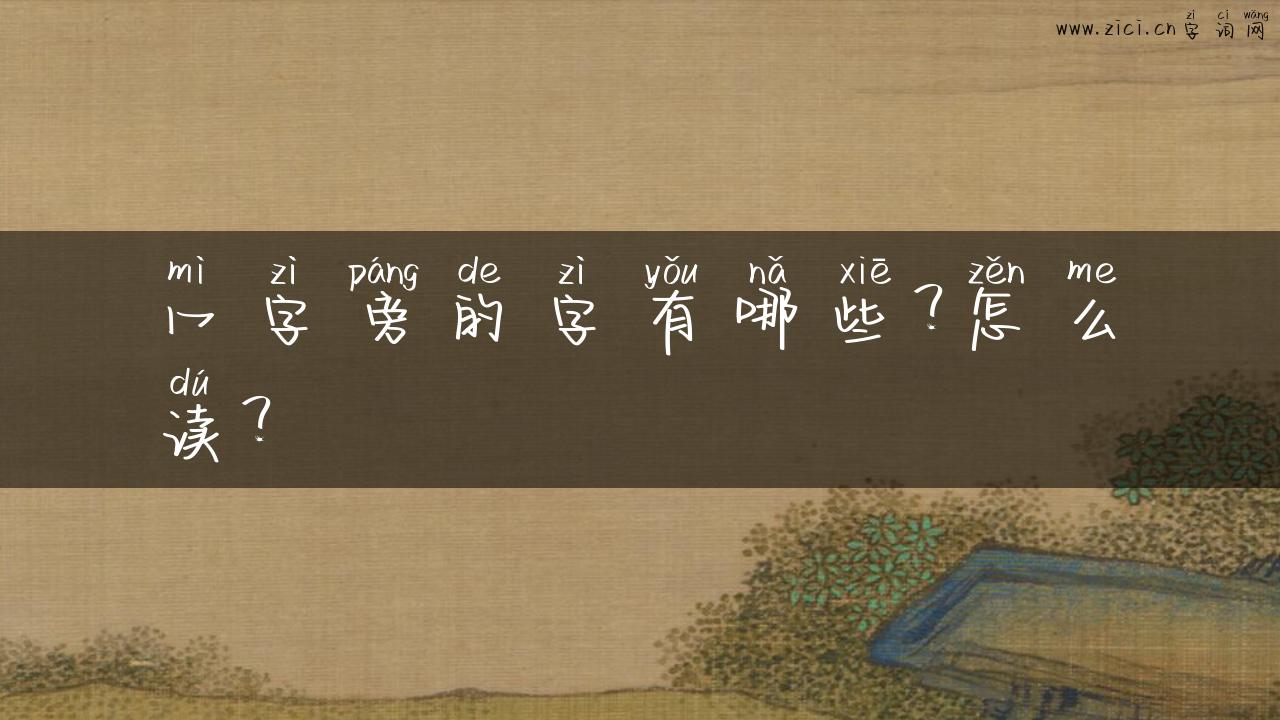 www.zici.cn字词网
zì cí wǎng
mì zì páng de zì yǒu nǎ xiē zěn me
冖字旁的字有哪些？怎么
dú
读？